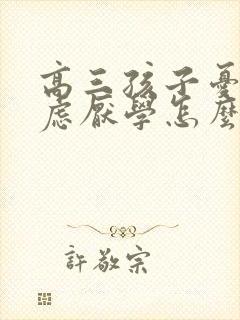 高三孩子憂
慮厭學怎麼
許敬宗